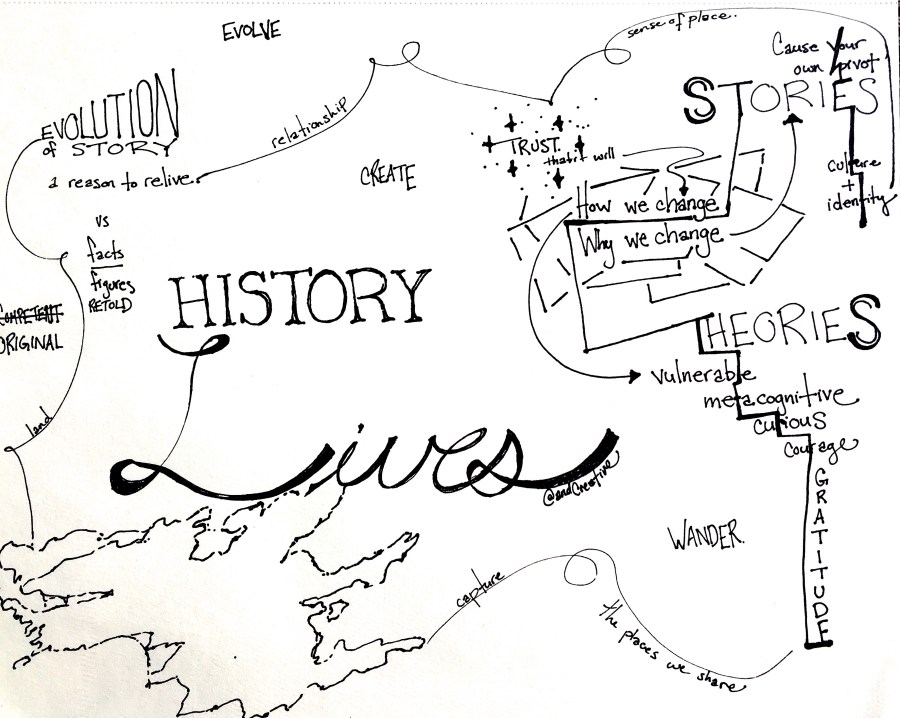 EVOLVE
sense of place.
Cause your
own pivot
STORIES
EVOLUTION
of STORY
relationship
a reason to relive.
TRUST.
that it will
CREATE
culture
+
identity
How we change
Why we change
vs
facts
figures
RETOLD
HISTORY
COMPETENT
ORIGINAL
THEORIES
vulnerable
metacognitive
curious
courage
GRATITUDE
land
Lives
@andCreative
WANDER.
capture
the places we share